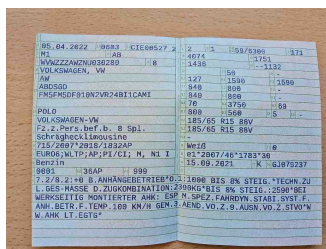 05.04.2022 0603 CIE00527 2
M1 AB
WVWZZZAWZNU030280 8
VOLKSWAGEN, VW
AW
ABDSGD
FM5FM5DF010N2VR24BI1CAMI
POLO
VOLKSWAGEN-VW
Fz.z.Pers.bef.b. 8 Spl.
Schräghecklimousine
715/2007*2018/1832AP
EURO6;WLTP;AP;PI/CI; M, N1 I
Benzin
0001 36AP 999
2 1 59/5300 171
4074 1751
1436 --1132
50 -
127 1590 1590
840 800 -
840 800 -
70 3750 69
560 5 -
185/65 R15 88V
185/65 R15 88V
-
Weiß 0
01*2007/46*1783*30
15.09.2021 K GJ075237
7.2/8.2:+0 B.ANHÄNGEBETRIEB*O.1:1000 BIS 8% STEIG.*TECHN.ZU
L.GES-MASSE D.ZUGKOMBINATION:2390KG*BIS 8% STEIG.:2590*BEI
WERKSEITIG MONTIERTER AHK: ESP M.SPEZ.FAHRDYN.STABI.SYST.F.
ANH.BETR.F.TEMP.100 KM/H GEM.3.AEND.VO.Z.9.AUSN.VO.Z.STVO*W
W.AHK LT.EGTG*